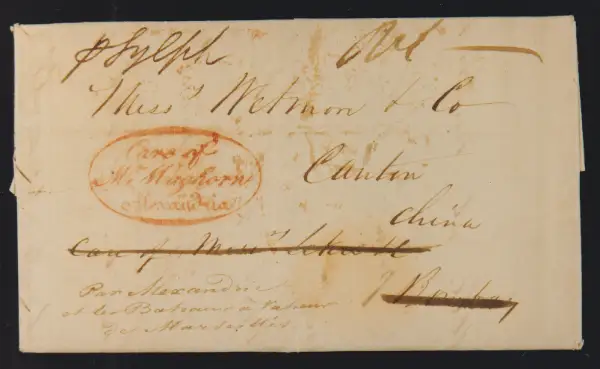 p Sylph
Mess.rs Wetmore & Co
Care of
Mr. Waghorn
Alexandria
Canton
China
Care of Mess.rs
Bombay
Par Alexandrie
et les Bateaux à Vapeur
de Marseilles